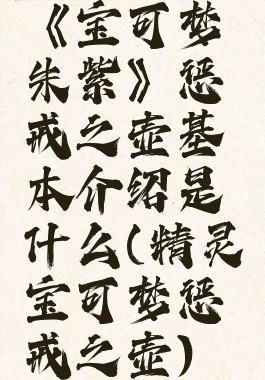 《宝可梦
朱紫》惩
戒之壶基
本介绍是
什么(精灵
宝可梦惩
戒之壶)